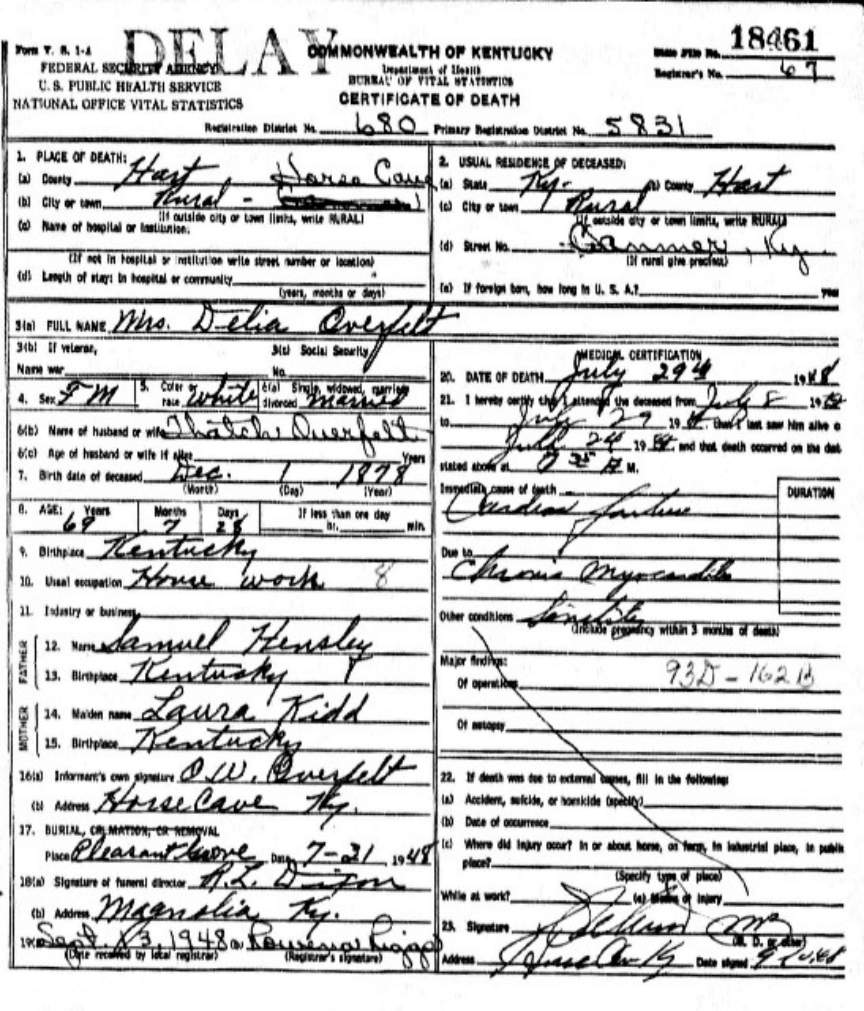 Form V. S. 1-A
DELAY
FEDERAL SECURITY AGENCY
U. S. PUBLIC HEALTH SERVICE
NATIONAL OFFICE VITAL STATISTICS
COMMONWEALTH OF KENTUCKY
Department of Health
BUREAU OF VITAL STATISTICS
CERTIFICATE OF DEATH
State File No. 18461
Registrar's No. 67
Registration District No. 680 Primary Registration District No. 5831
1. PLACE OF DEATH:
(a) County Hart Horse Cave
(b) City or town Rural -
(If outside city or town limits, write RURAL)
(c) Name of hospital or institution:
(If not in hospital or institution write street number or location)
(d) Length of stay: in hospital or community
(years, months or days)
2. USUAL RESIDENCE OF DECEASED:
(a) State Ky. (b) County Hart
(c) City or town Rural
(If outside city or town limits, write RURAL)
(d) Street No. Canmer, Ky.
(If rural give precinct)
(e) If foreign born, how long in U. S. A.? years
3(a) FULL NAME Mrs. Delia Overfelt
3(b) If veteran,
Name war
3(c) Social Security
No.
4. Sex F M 5. Color or race White 6(a) Single, widowed, married, divorced Married
6(b) Name of husband or wife Thatch Overfelt
6(c) Age of husband or wife if alive Years
7. Birth date of deceased Dec. 1 1878
(Month) (Day) (Year)
8. AGE: Years Months Days If less than one day
69 7 28 hr. min.
9. Birthplace Kentucky
10. Usual occupation House work 8
11. Industry or business
FATHER
12. Name Samuel Hensley
13. Birthplace Kentucky
MOTHER
14. Maiden name Laura Kidd
15. Birthplace Kentucky
16(a) Informant's own signature O.W. Overfelt
(b) Address Horse Cave Ky.
17. BURIAL, CREMATION, OR REMOVAL
Place Pleasant Grove Date 7-31 1948
18(a) Signature of funeral director R.L. Dixon
(b) Address Magnolia Ky.
19(a) Sept. 13, 1948 (b) Rowena Riggs
(Date received by local registrar) (Registrar's signature)
MEDICAL CERTIFICATION
20. DATE OF DEATH July 29th 1948
21. I hereby certify that I attended the deceased from July 8 1948
to July 29 1948, that I last saw him alive o
July 24 1948 and that death occurred on the dat
stated above at M.
Immediate cause of death
DURATION
Cardiac failure
Due to
Chronic Myocarditis
Other conditions Senility
(Include pregnancy within 3 months of death)
Major findings:
93D - 162B
Of operations
Of autopsy
22. If death was due to external causes, fill in the following:
(a) Accident, suicide, or homicide (specify)
(b) Date of occurrence
(c) Where did injury occur? In or about home, on farm, in industrial place, in public
place?
(Specify type of place)
While at work? (e) Means of injury
23. Signature
(M. D. or other)
Address Horse Cave Ky Date signed